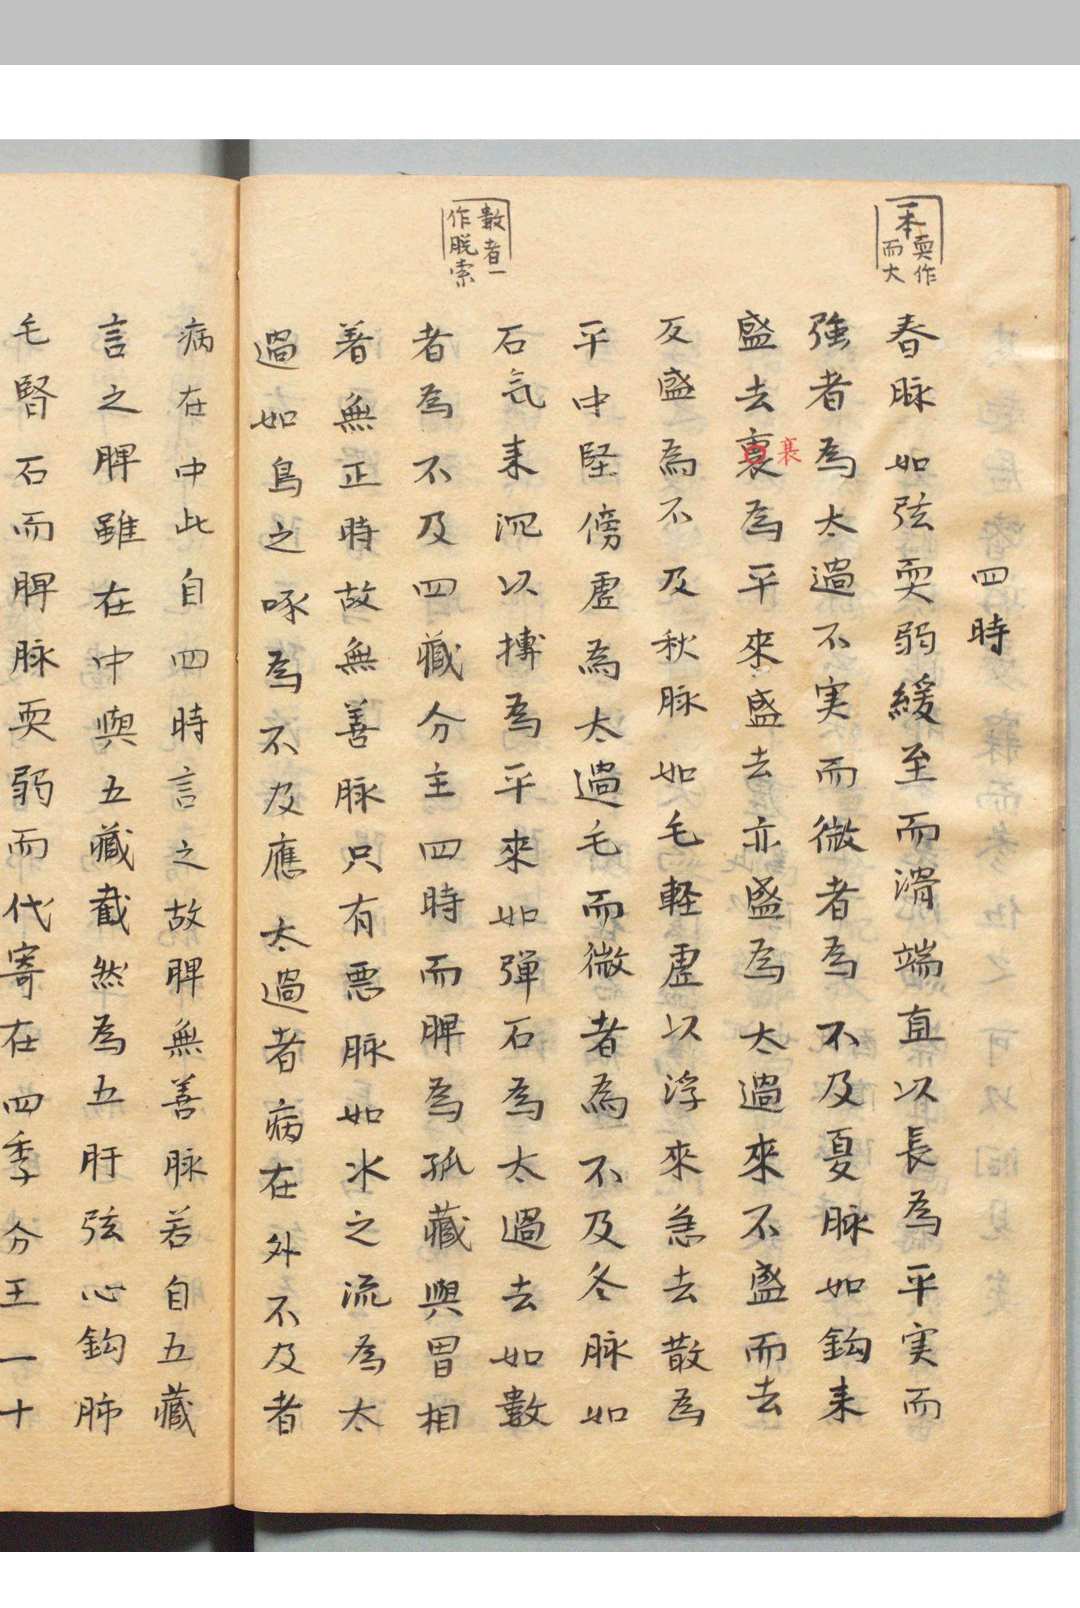 四時
春脉如弦耎弱緩至而滑端直以長為平実而
強者為太過不実而微者為不及夏脉如鈎来
盛去裏為平來盛去亦盛為太過來不盛而去
衰
反盛為不及秋脉如毛軽虚以浮來急去散為
平中堅傍虚為太過毛而微者為不及冬脉如
石気来沉以摶為平來如弾石為太過去如數
者為不及四藏分主四時而脾為孤藏與胃相
著無正時故無善脉只有悪脉如水之流為太
過如鳥之啄為不及應太過者病在外不及者
病在中此自四時言之故脾無善脉若自五藏
言之脾雖在中與五藏截然為五肝弦心鈎肺
毛腎石而脾脉耎弱而代寄在四季分王一十
一本耎作
而大
數者一
作脱索